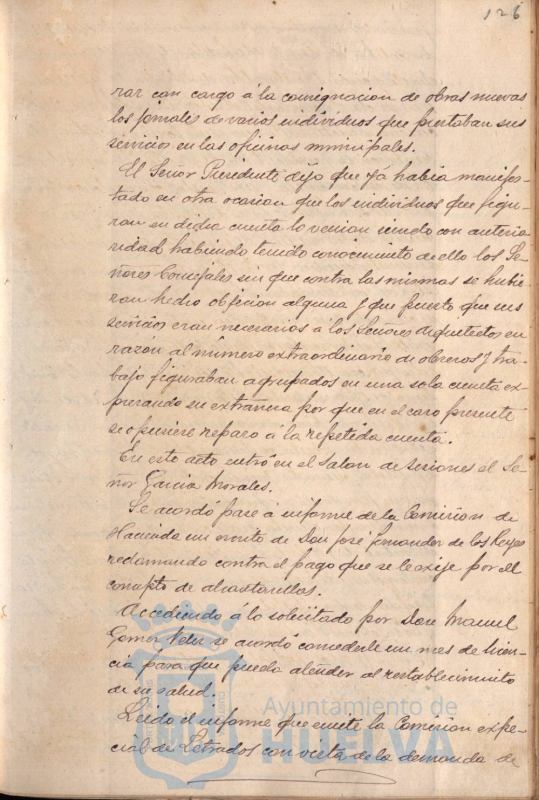 126
rar con cargo á la consignacion de obras nuevas
los jornales de varios individuos que prestaban sus
servicios en las oficinas municipales.
El Señor Presidente dijo que ya habia manifes-
tado en otra ocasion que los individuos que figu-
ran en dicha cuenta lo venian siendo con anterio-
ridad habiendo tenido conocimiento de ello los Se-
ñores Concejales sin que contra las mismas se hubie-
ran hecho objecion alguna y que puesto que sus
servicios eran necesarios á los Señores Arquitectos en
razón al número extraordinario de obreros y tra-
bajo figuraban agrupados en una sola cuenta ex-
presando su extrañeza por que en el caso presente
se opusiere reparo á la repetida cuenta.
En este acto entró en el Salon de sesiones el Se-
ñor Garcia Morales.
Se acordó pase á informe de la Comision de
Hacienda un escrito de Don José Fernandez de los Reyes
reclamando contra el pago que se le exije por el
concepto de alcantarillas.
Accediendo á lo solicitado por Don Manuel
Gomez se acordó concederle un mes de licen-
cia para que pueda atender al restablecimiento
de su salud.
Leido el informe que emite la Comision espe-
cial de Letrados con vista de la demanda de
Ayuntamiento de
HUELVA